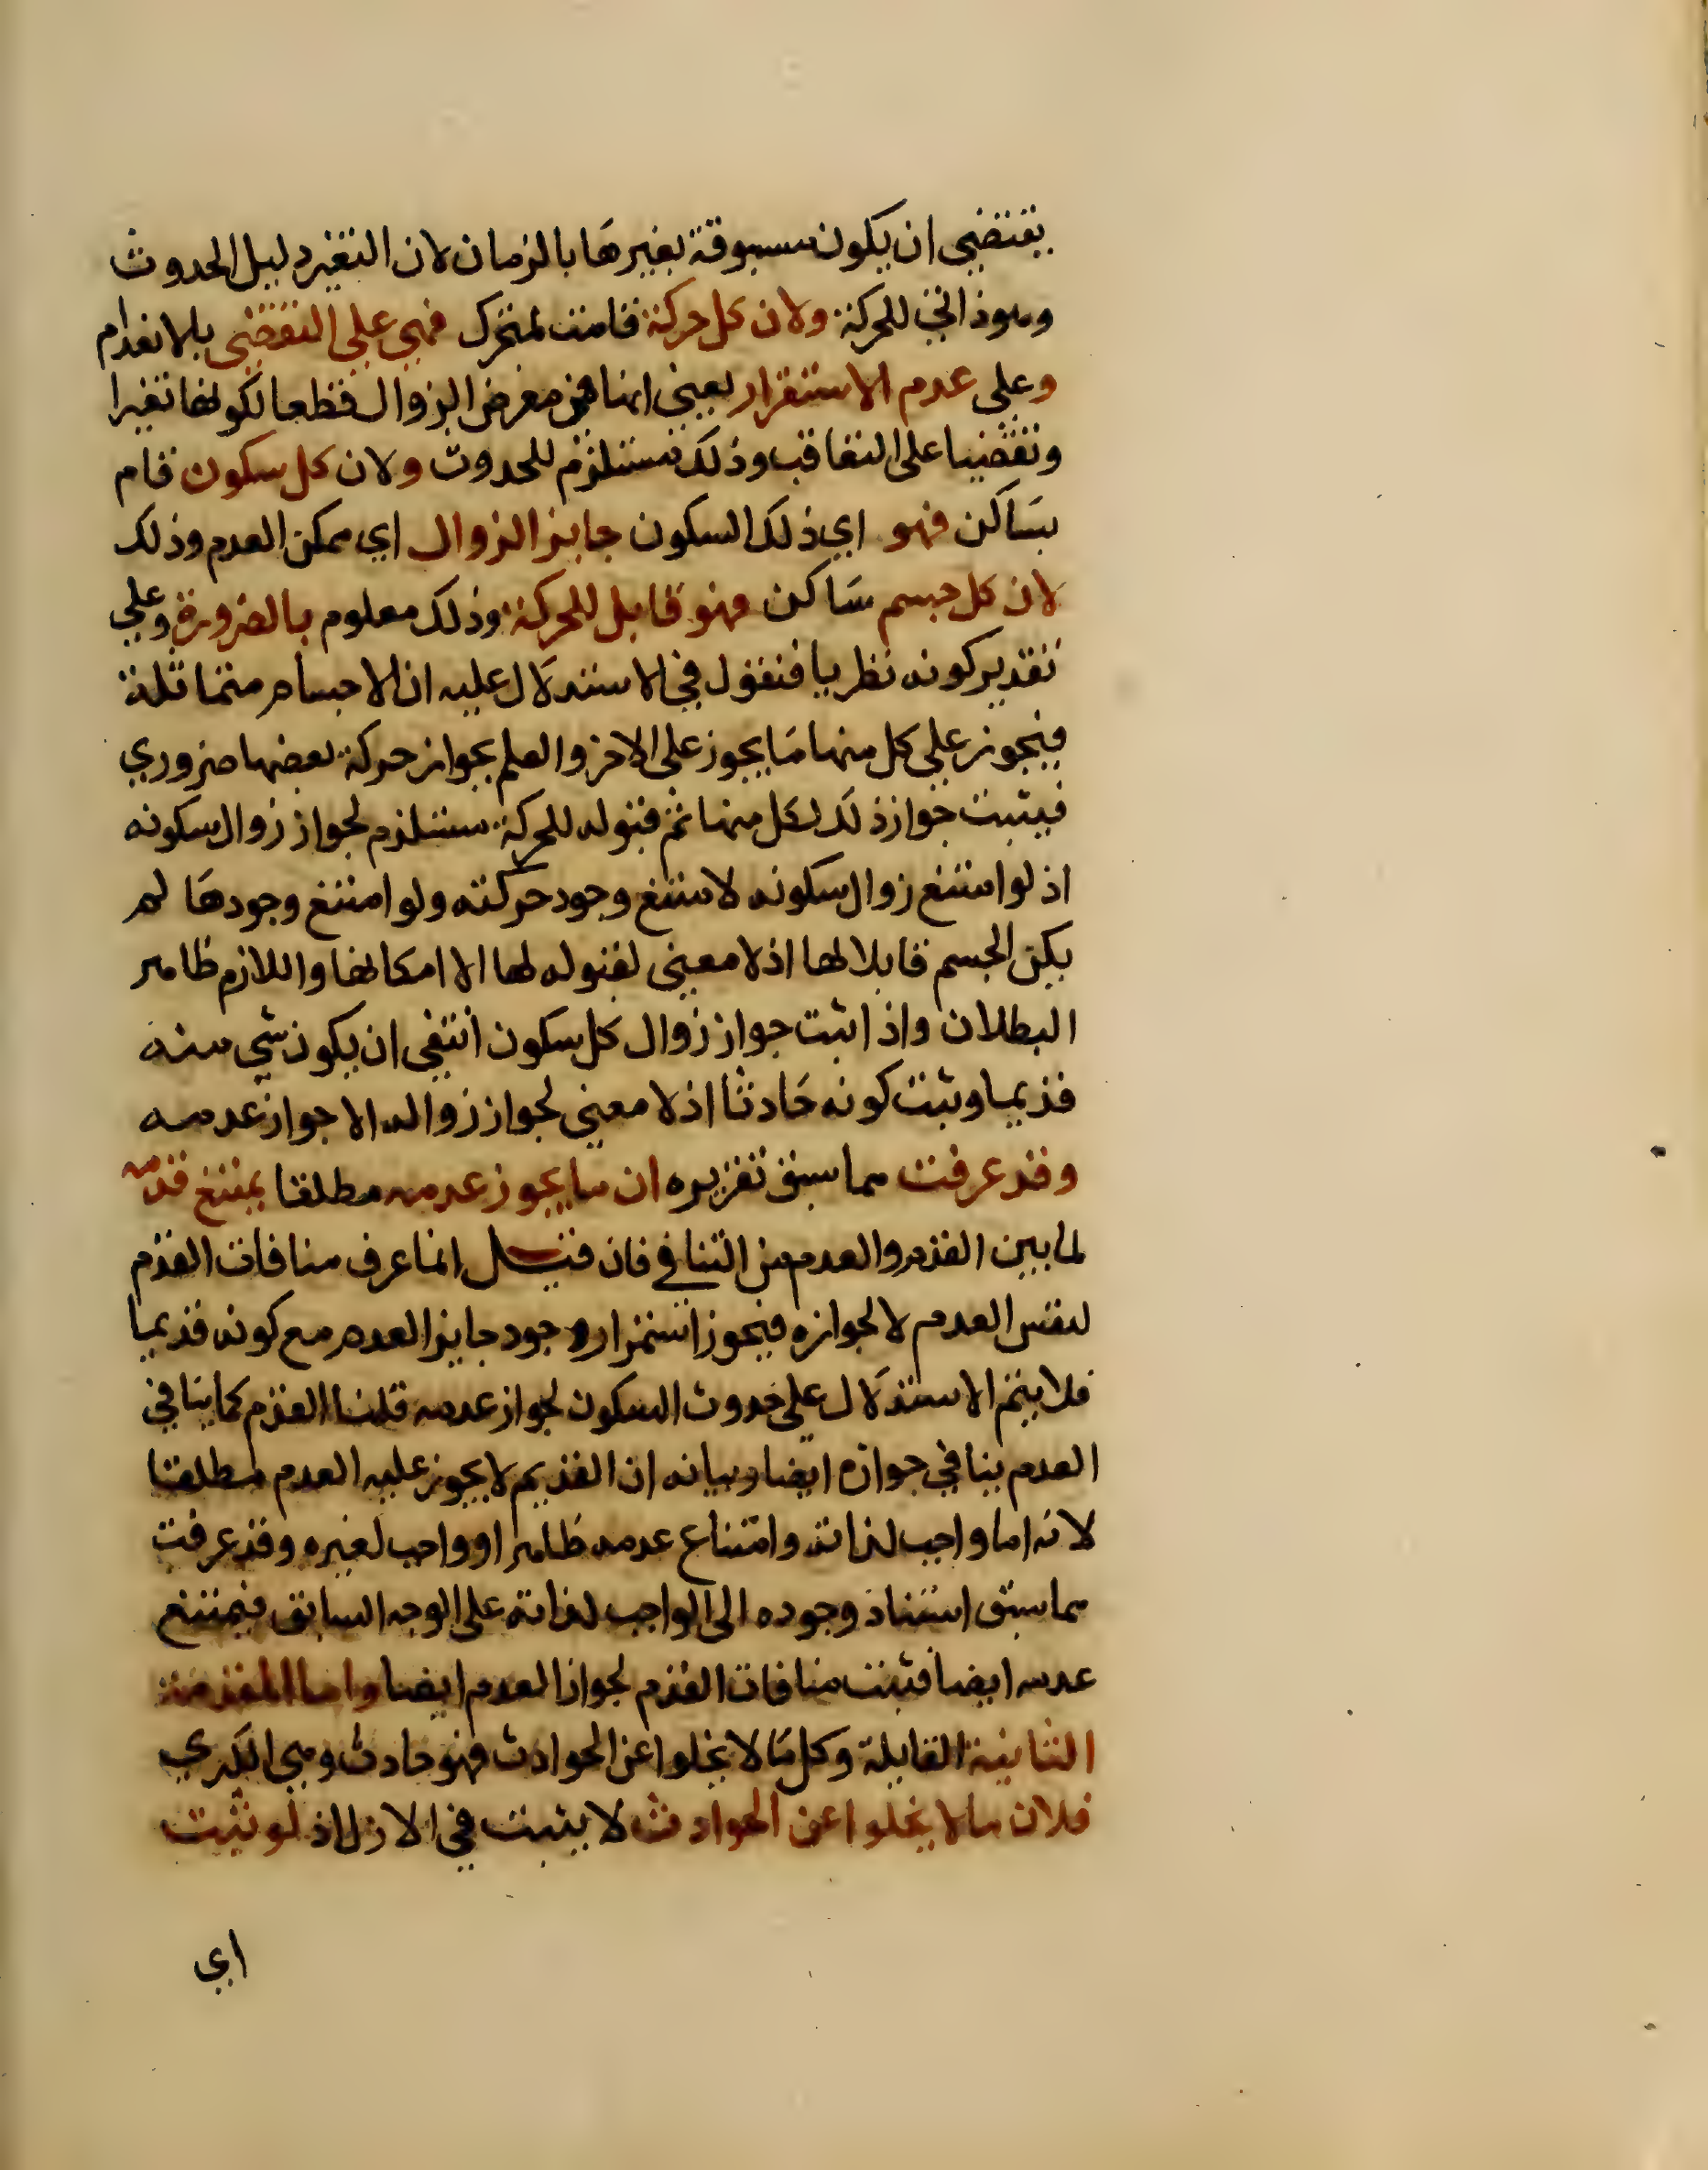 يقتضي ان يكون مسبوقة بغيرها بالزمان لان التغير دليل الحدوث
وهو ذاتي للحركة ولان كل حركة قامت لمتحرك فهي على التقضي بالانعدام
وعلي عدم الاستقرار يعني انها في معرض الزوال قطعا لكونها تغيرا
وتقضيا على التعاقب وذلك مستلزم للحدوث ولان كل سكون قام
بساكن فهو اي ذلك السكون جايز الزوال اي ممكن العدم وذلك
لان كل جسم ساكن فهو قابل للحركة وذلك معلوم بالضرورة وعلي
تقدير كونه نظريا فنقول في الاستدلال عليه ان الاجسام متماثلة
فيجوز علي كل منها ما يجوز على الاخر والعلم بجواز حركة بعضها ضروري
فيثبت جواز ذلك لكل منها ثم قبوله للحركة مستلزم لجواز زوال سكونه
اذ لو امتنع زوال سكونه لامتنع وجود حركته ولو امتنع وجودها لم
يكن الجسم قابلا لها اذ لا معني لقبوله لها الا امكانها واللازم ظاهر
البطلان واذا ثبت جواز زوال كل سكون انتفي ان يكون شي منه
قديما وثبت كونه حادثا اذ لا معني لجواز زواله الا جواز عدمه
وقد عرفت مما سبق تقريره ان ما يجوز عدمه مطلقا يمتنع قدمه
لما بين القدم والعدم من التنافي فان قيل انما عرف منافات القدم
لنفس العدم لا لجوازه فيجوز استمرار وجود جايز العدم مع كونه قديما
فلا يتم الاستدلال علي حدوث السكون لجواز عدمه قلنا القدم كما ينافي
العدم ينافي جوازه ايضا وبيانه ان القديم لا يجوز عليه العدم مطلقا
لانه اما واجب لذاته وامتناع عدمه ظاهر او واجب لغيره وقد عرفت
مما سبق استناد وجوده الى الواجب لذاته على الوجه السابق فيمتنع
عدمه ايضا فثبت منافات القدم لجواز العدم ايضا واما المقدمة
الثانية القايلة وكل ما لا يخلوا عن الحوادث فهو حادث وهي الكبري
فلان ما لا يخلوا عن الحوادث لا يثبت في الازل اذ لو ثبت
اي